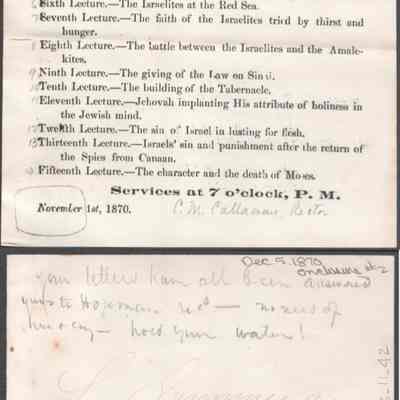 Sixth Lecture.—The Israelites at the Red Sea.
Seventh Lecture.—The faith of the Israelites tried by thirst and
hunger.
Eighth Lecture.—The battle between the Israelites and the Amale-
kites.
Ninth Lecture.—The giving of the Law on Sinai.
Tenth Lecture.—The building of the Tabernacle.
Eleventh Lecture.—Jehovah implanting His attribute of holiness in
the Jewish mind.
Twelfth Lecture.—The sin of Israel in lusting for flesh.
Thirteenth Lecture.—Israels' sin and punishment after the return of
the Spies from Canaan.
Fifteenth Lecture.—The character and the death of Moses.
Services at 7 o'clock, P. M.
November 1st, 1870. C. M. Callaway, Rector
Dec 5, 1870
enclosure
your letters have all been answered
no need of
hold your